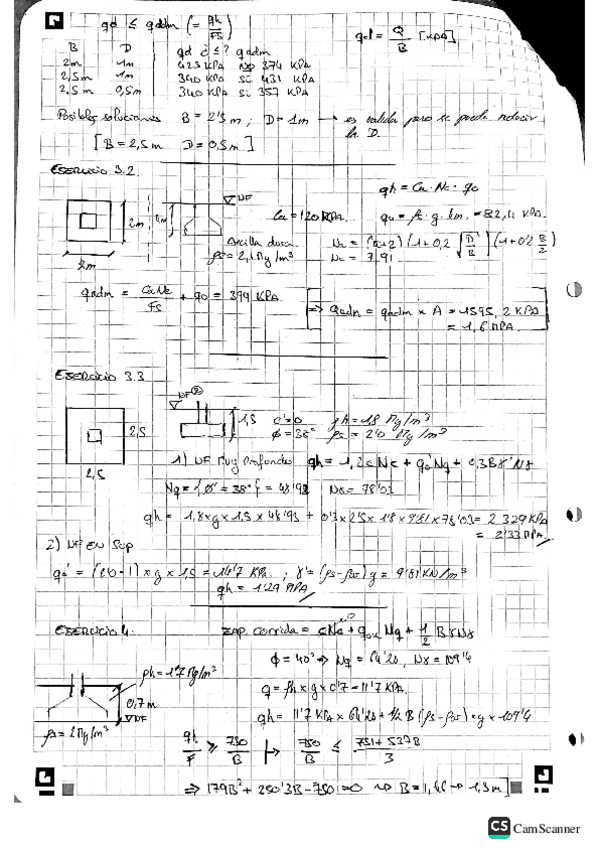 qd ≤ qadm (= qh/FS)    qd = Q/B [KPA]
B    D    qd ¿≤? qadm
2m    1m    425 KPA NO 374 KPA
2,5m    1m    340 KPA SI 431 KPA
2,5m    0,5m    340 KPA SI 357 KPA
Posibles soluciones    B = 2'5 m ; D = 1m → es valida pero se puede reducir
la D.
[B = 2,5m    D = 0,5m]
EJERCICIO 3.2
qh = Cu · Nc + q0
NF
2m
Cu = 120 KPA.    q0 = ρs · g · 4m. = 82,4 KPA.
Arcilla dura.
ρs = 2,1 Mg/m³
Nc = 7.91
2m
qadm = CuNc/FS + q0 = 399 KPA    ⇒ Qadm = qadm × A = 1595,2 KPA
= 1,6 MPA.
EJERCICIO 3.3
NF
1,5    c'=0    ρh = 1'8 Mg/m³
2,5    φ = 38°    ρs = 2'0 Mg/m³
2,5
1) NF Muy Profundo    qh = 1,2cNc + q0'Nq + 0,3Bγ'Nγ
Nq = {φ' = 38°} = 48'93    Nγ = 78'03
qh = 1,8×g×1,5×48'93 + 0'3×2'5×1'8×9'81×78'03 = 2 329 KPA
= 2'33 MPA
2) NF EN SUP
q0' = (2'0-1)×g×1,5 = 14'7 KPA. ; γ' = (ρs-ρw)g = 9'81 KN/m³
qh = 1'29 MPA
EJERCICIO 4.    zap. corrida = cNc + Nq + 1/2 BγNγ
φ = 40° ⇒ Nq = 64'20, Nγ = 109'4
ρh = 1'7 Mg/m³
q = ρh × g × 0'7 = 11'7 KPA.
0,7 m
NF
qh = 11'7 KPA × 64'20 + 1/2 B (ρs-ρw) × g × 109'4
ρs = 2 Mg/m³
qh/F ≥ 750/B    750/B ≤ (751 + 537B)/3
⇒ 179B² + 250'3B - 750 = 0
CS CamScanner